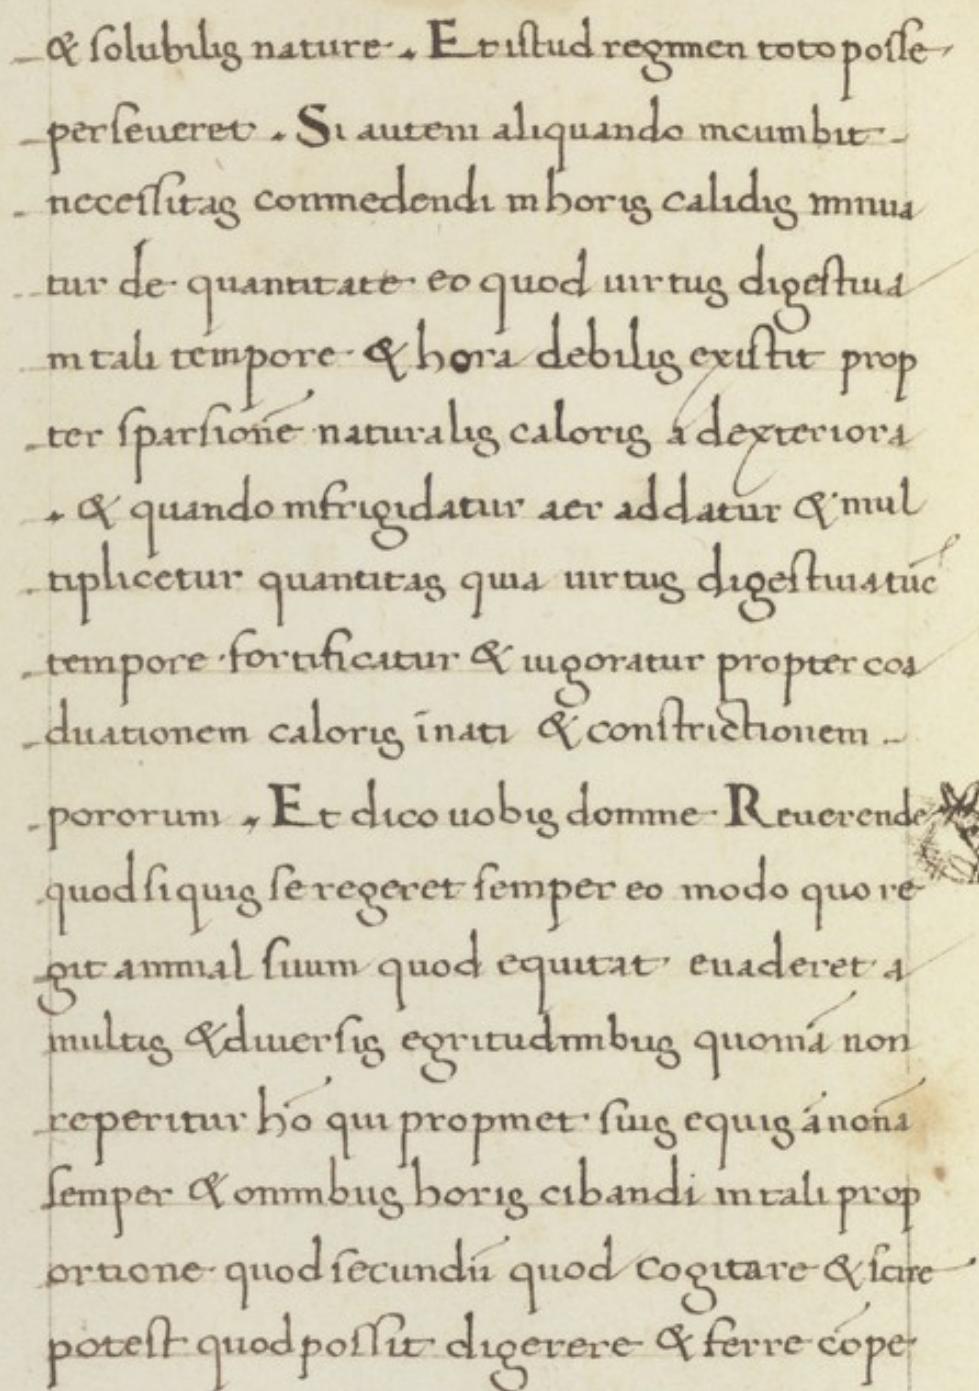 & solubilis nature . Et istud regimen toto posse
perseueret . Si autem aliquando incumbit
necessitas commedendi in horis calidis minua
tur de quantitate eo quod uirtus digestiua
in tali tempore & hora debilis existit prop
ter sparsionē naturalis caloris ad exteriora
. & quando infrigidatur aer addatur & mul
tiplicetur quantitas quia uirtus digestiua tūc
tempore fortificatur & uigoratur propter coa
duationem caloris īnati & constrictionem
pororum . Et dico uobis domine Reuerende
quod si quis se regeret semper eo modo quo re
git animal suum quod equitat euaderet a
multis & diuersis egritudinibus quoniā non
reperitur hō qui propinet suis equis ānonā
semper & omnibus horis cibandi in tali prop
ortione quod secundū quod cogitare & scire
potest quod possit digerere & ferre cōpe